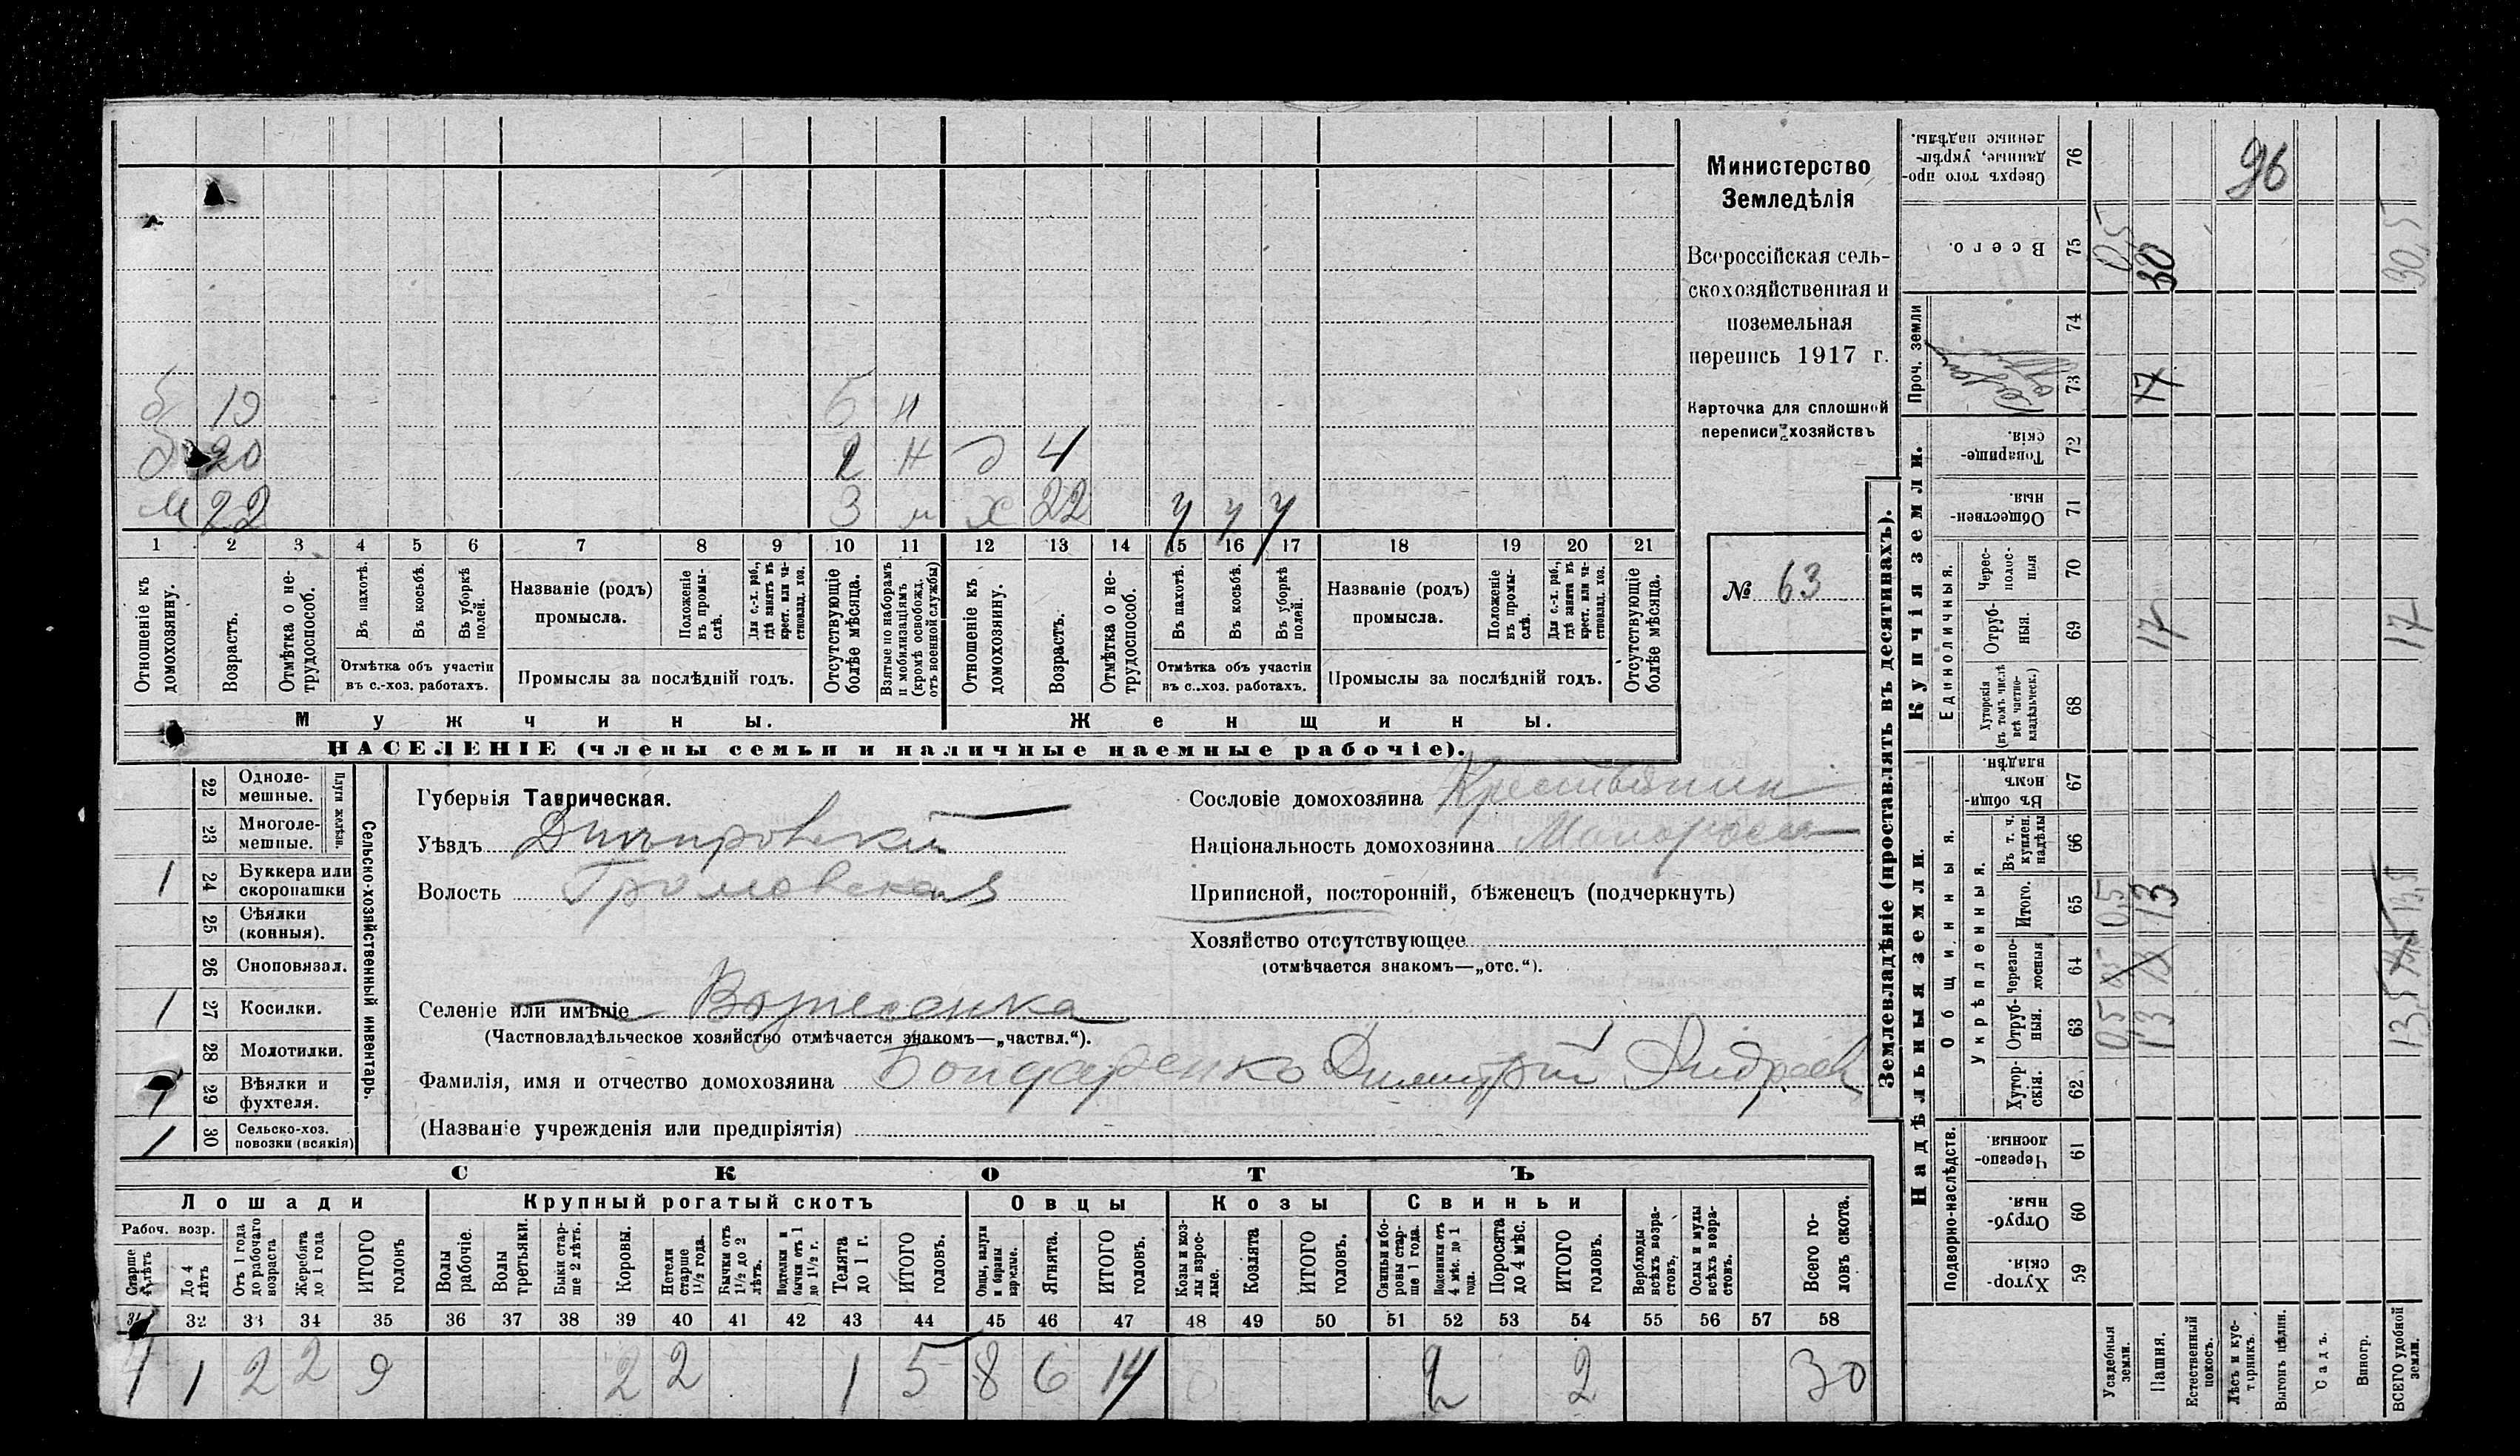 Министерство
Земледѣлія
Всероссійская сель-
скохозяйственная и
поземельная
перепись 1917 г.
Карточка для сплошной
переписи хозяйствъ
№ 63
б 19 5 н
20 2 н д 4
м 22 3 м х 22 у у у
1 2 3 4 5 6 7 8 9 10 11 12 13 14 15 16 17 18 19 20 21
Отношеніе къ домохозяину.
Возрастъ.
Отмѣтка о не-трудоспособ.
Въ пахотѣ.
Въ косьбѣ.
Въ уборкѣ полей.
Отмѣтка объ участіи
въ с.-хоз. работахъ.
Названіе (родъ)
промысла.
Положеніе въ промы-слѣ.
Для с.-х. раб., гдѣ занятъ въ крест. или ча-стновлад. хоз.
Промыслы за послѣдній годъ.
Отсутствующіе болѣе мѣсяца.
Взятые по наборамъ и мобилизаціямъ (кромѣ освобожд. отъ военной службы)
Отношеніе къ домохозяину.
Возрастъ.
Отмѣтка о не-трудоспособ.
Въ пахотѣ.
Въ косьбѣ.
Въ уборкѣ полей.
Отмѣтка объ участіи
въ с.-хоз. работахъ.
Названіе (родъ)
промысла.
Положеніе въ промы-слѣ.
Для с.-х. раб., гдѣ занята въ крест. или ча-стновлад. хоз.
Промыслы за послѣдній годъ.
Отсутствующіе болѣе мѣсяца.
Мужчины.
Женщины.
НАСЕЛЕНІЕ (члены семьи и наличные наемные рабочіе).
Сельско-хозяйственный инвентарь.
Плуги желѣзн.
22 Одноле-мешные.
23 Многоле-мешные.
1 24 Буккера или скоропашки
25 Сѣялки (конныя).
26 Сноповязал.
1 27 Косилки.
28 Молотилки.
1 29 Вѣялки и фухтеля.
1 30 Сельско-хоз. повозки (всякія)
Губернія Таврическая.
Уѣздъ Днѣпровскій
Волость Громовская
Селеніе или имѣніе Вознесенка
(Частновладѣльческое хозяйство отмѣчается знакомъ—„частвл.“).
Фамилія, имя и отчество домохозяина Бондаренко Димитрій Андреев
(Названіе учрежденія или предпріятія)
Сословіе домохозяина Крестьянин
Національность домохозяина Малоросс
Приписной, посторонній, бѣженецъ (подчеркнуть)
Хозяйство отсутствующее
(отмѣчается знакомъ—„отс.“).
СКОТЪ
Лошади
Крупный рогатый скотъ
Овцы
Козы
Свиньи
Рабоч. возр.
Старше 4 лѣтъ
До 4 лѣтъ
Отъ 1 года до рабочаго возраста
Жеребята до 1 года
ИТОГО головъ
Волы рабочіе.
Волы третьяки.
Быки стар-ше 2 лѣтъ.
Коровы.
Нетели старше 1½ года.
Бычки отъ 1½ до 2 лѣтъ.
Подтелки и бычки отъ 1 до 1½ г.
Телята до 1 г.
ИТОГО головъ.
Овцы, валухи и бараны взрослые.
Ягнята.
ИТОГО головъ.
Козы и коз-лы взрос-лые.
Козлята
ИТОГО головъ.
Свиньи и бо-ровы стар-ше 1 года.
Подсвинки отъ 4 мѣс. до 1 года.
Поросята до 4 мѣс.
ИТОГО головъ.
Верблюды всѣхъ возра-стовъ.
Ослы и мулы всѣхъ возра-стовъ.
Всего го-ловъ скота.
31 32 33 34 35 36 37 38 39 40 41 42 43 44 45 46 47 48 49 50 51 52 53 54 55 56 57 58
4 1 2 2 9 2 2 1 5 8 6 14 2 2 30
Землевладѣніе (проставлять въ десятинахъ).
Надѣльныя земли.
Купчія земли.
Проч. земли
Подворно-наслѣдств.
Общинныя.
Укрѣпленныя.
Единоличныя.
Сверхъ того про-данные, укрѣп-ленные надѣлы. 76 96
Всего. 75 0,5 30 30,5
74
73 17
Товарище-скія. 72
Обществен-ныя. 71
Черес-полос-ныя 70
Отруб-ныя. 69 17 17
Хуторскія (въ томъ числѣ всѣ частно-владѣльческ.) 68
Въ общин-номъ владѣн. 67
Въ т. ч. куплен. надѣлы 66
Итого. 65 0,5 13 13,5
Черезпо-лосныя 64
Отруб-ныя. 63 0,5 13 13,5
Хутор-скія. 62
Черезпо-лосныя. 61
Отруб-ныя. 60
Хутор-скія. 59
Усадебныя земли.
Пашня.
Естественный покосъ.
Лѣсъ и кус-тарникъ.
Выгонъ цѣлин.
Садъ.
Виногр.
ВСЕГО удобной земли.